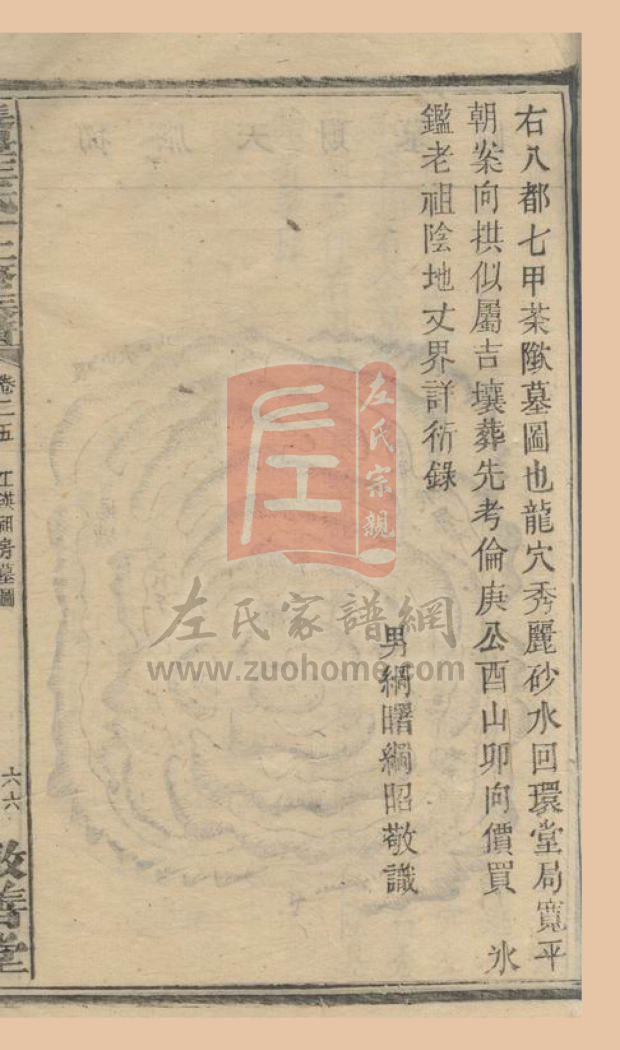 右八都七甲茶陂墓圖也龍穴秀麗砂水回環堂局寬平
朝案向拱似屬吉壤葬先考倫庚公酉山卯向價買 氷
鑑老祖陰地丈界詳衍錄
男綱曙綱昭敬識
卷二五 工瑛祖房墓圖
六六 敦善堂
左氏宗親
左氏家譜網
www.zuohome.com